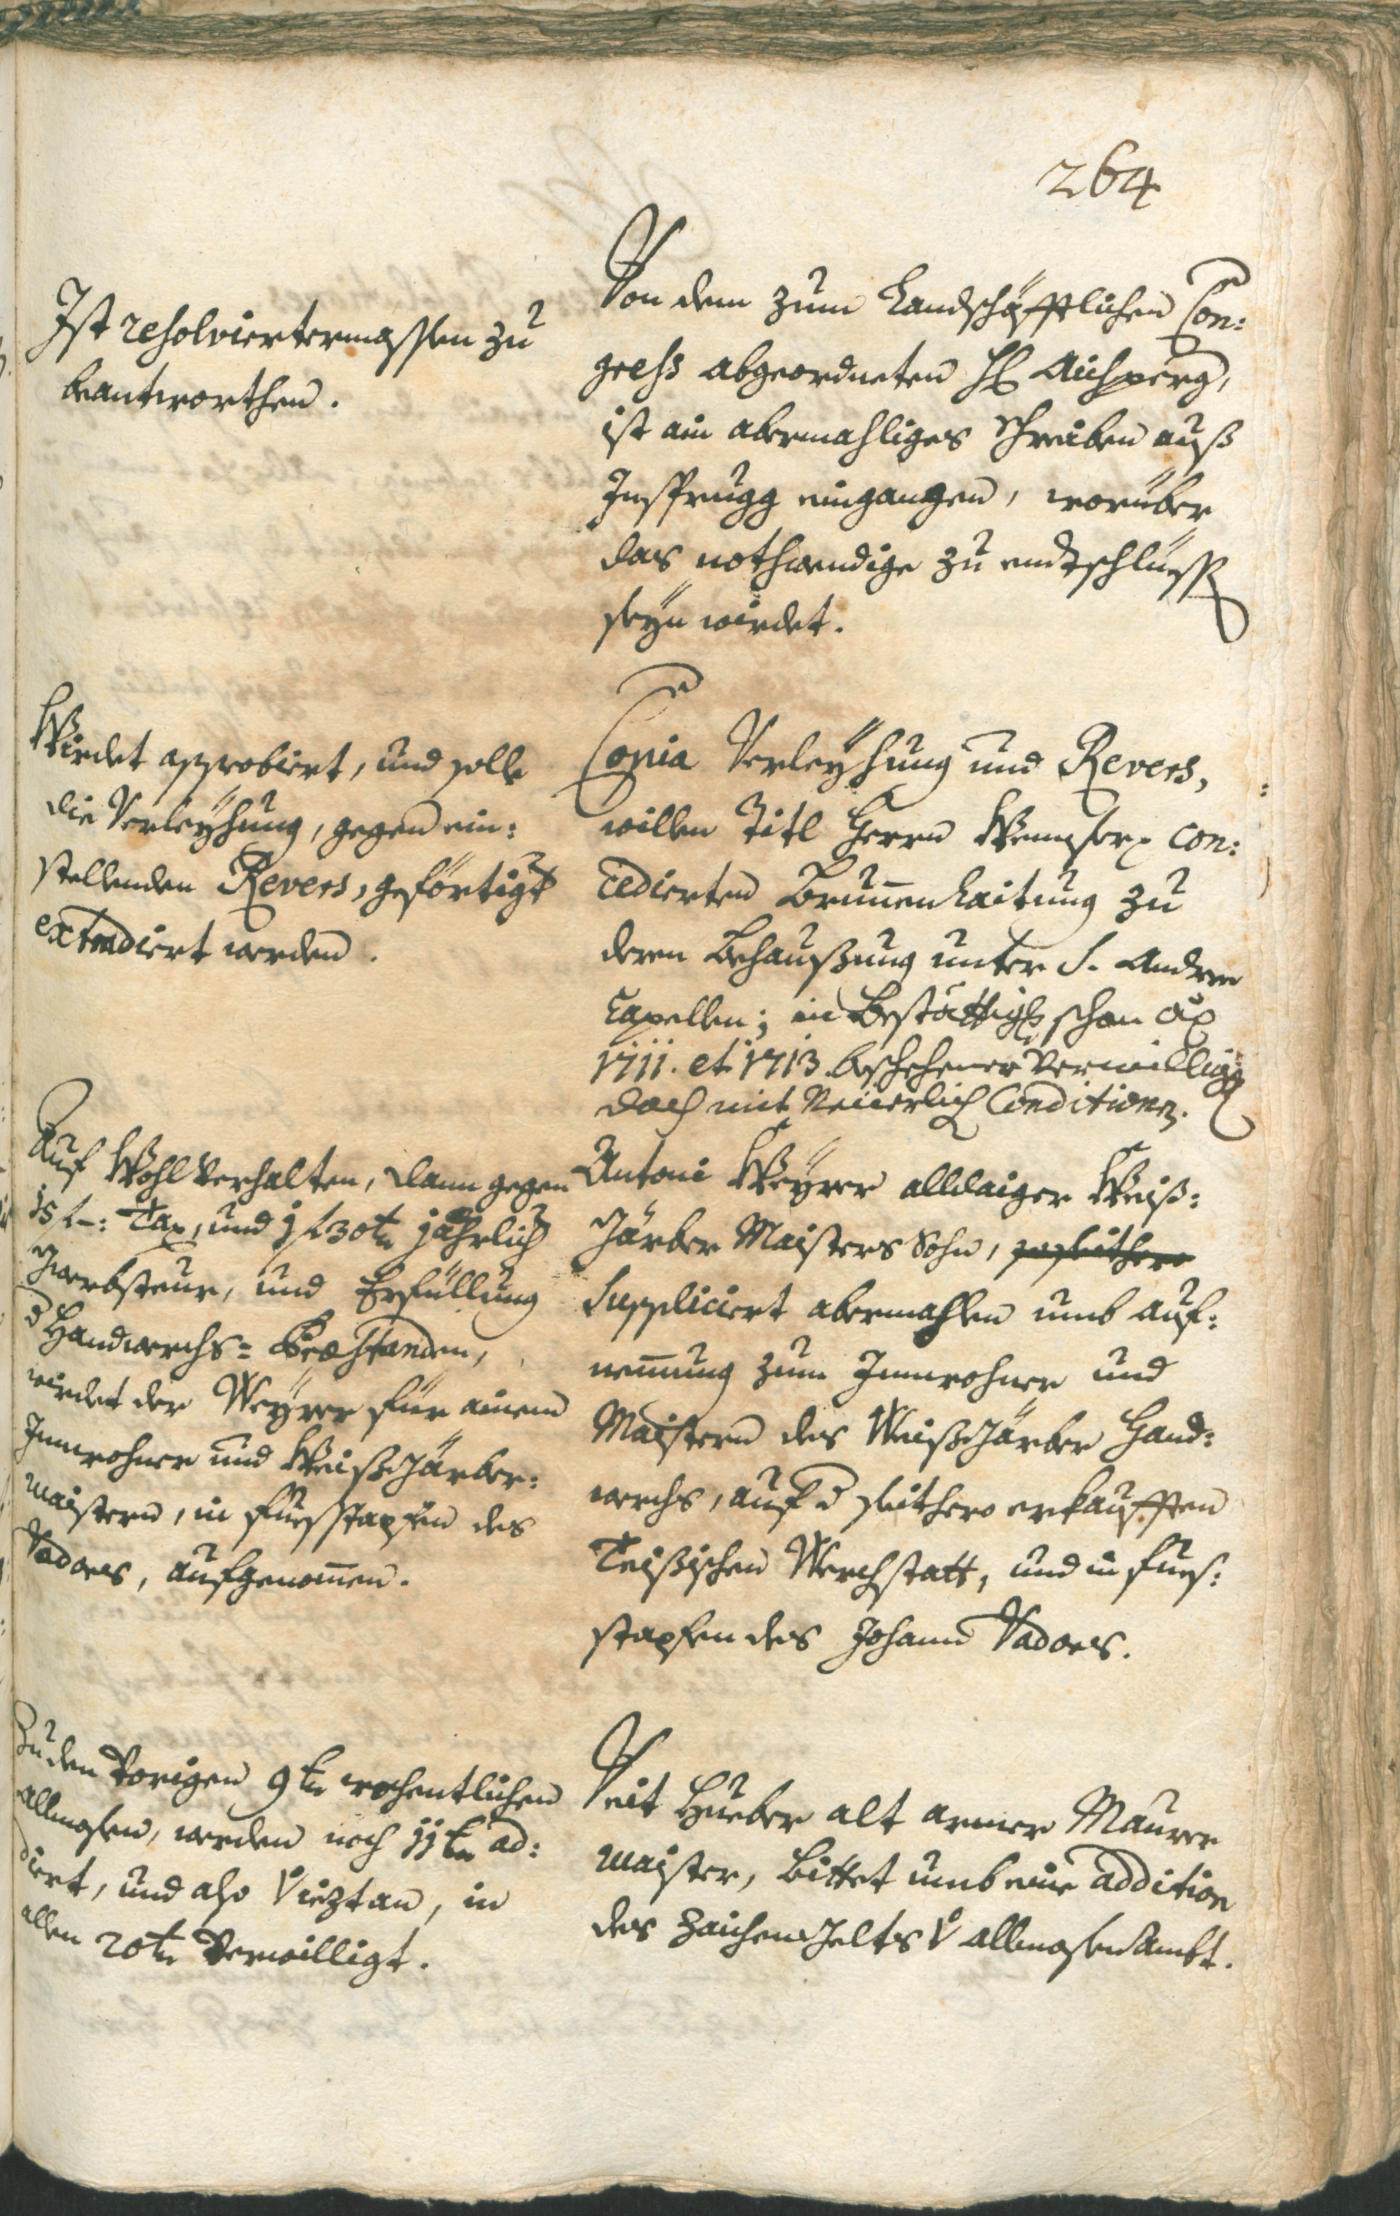 264
Ist resolviertermassen zu
beantworthen.
Von dem zum Landschäfftlichen Con:
gress abgeordneten H: Aichperg,
ist ain abermahliges Schreiben auß
Insprugg eingangen, worüber
das nothwendige zu endtschlüss
seÿn wirdet.
Wirdet approbiert, und solle
die Verleÿhung, gegen ein:
stellenden Revers, geförtigt
extradiert werden.
Copia Verleÿhung und Revers,
willen Titl Herrn con:
cedierten Brunnenlaitung zu
deren Behaußung unter S. Andree
Capellen; in Bestättig: schon a:
1711. et 1713. beschehener Verwillig:
doch mit Neüerlich Conditionen.
Auf Wohlverhalten, dann gegen
15 f –: Tax, und 1 f 30 k: jährlich
Gwerbsteur, und Erfüllung
d Handwerchs=
wirdet der Weÿrer für ainem
Innwohner und Weißgärber:
maistern, in fuesstapfen des
Vadoers, aufgenommen.
Antoni Weÿrer alldaiger Weiß:
Gärber Maisters Sohn, so seithero
Suppliciert abermahlen umb auf:
nemmung zum Innwohner und
Maistern des Weißgärber Hand:
werchs, auf d seithero erkaufften
Teißischen Werchstatt, und in fues:
stapfen des Johann Vadoers.
Zu den Vorigen 9 k: wochentlichen
allmosen, werden noch 11 k: ad:
diert, und also Viertzan, in
allen 20 k: Verwilligt.
Veit Hueber alt armer Maurer
maister, bittet umb eine addition
des Zaichengelts V allmosen Ambt.